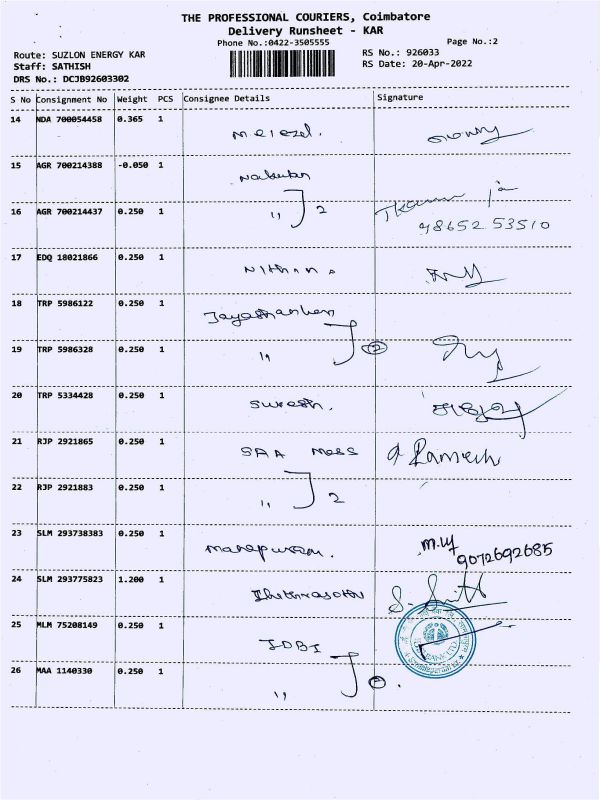 THE PROFESSIONAL COURIERS, Coimbatore
Delivery Runsheet - KAR
Phone No.:0422-3505555
Page No.:2
Route: SUZLON ENERGY KAR
RS No.: 926033
Staff: SATHISH
RS Date: 20-Apr-2022
DRS No.: DCJB92603302
S No Consignment No Weight PCS Consignee Details Signature
14 NDA 700054458 0.365 1
15 AGR 700214388 -0.050 1
16 AGR 700214437 0.250 1 ,, 2
98652 53510
17 EDQ 18021866 0.250 1 Nithin
18 TRP 5986122 0.250 1
19 TRP 5986328 0.250 1 ,, 2
20 TRP 5334428 0.250 1 Suresh.
21 RJP 2921865 0.250 1 SAA Mess Ramesh
22 RJP 2921883 0.250 1 ,, 2
23 SLM 293738383 0.250 1
9072692685
24 SLM 293775823 1.200 1
25 MLM 75208149 0.250 1 IDBI
26 MAA 1140330 0.250 1 ,,